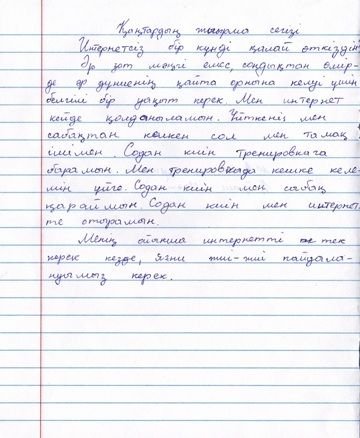 Қаңтардың жиырма сегізі
Интернетсіз бір күнді қалай өткіздің
Әр зат мәңгі емес, сондықтан өмір-
де әр дүниенің қайта орнына келуі үшін
белгілі бір уақыт керек. Мен интернет
кейде қолданыламын. Үйткені мен
сабақтан келкен сол мен тамақ
ішімен. Содан киін тренировкага
барамын. Мен тренировкада кешке келе-
мін үйге. Содан киін мен сабақ
қараймын. Содан киін мен интернет-
те отырамын.
Менің ойымша интернетті тек
керек кезде, яғни жиі-жиі пайдала-
нуымыз керек.